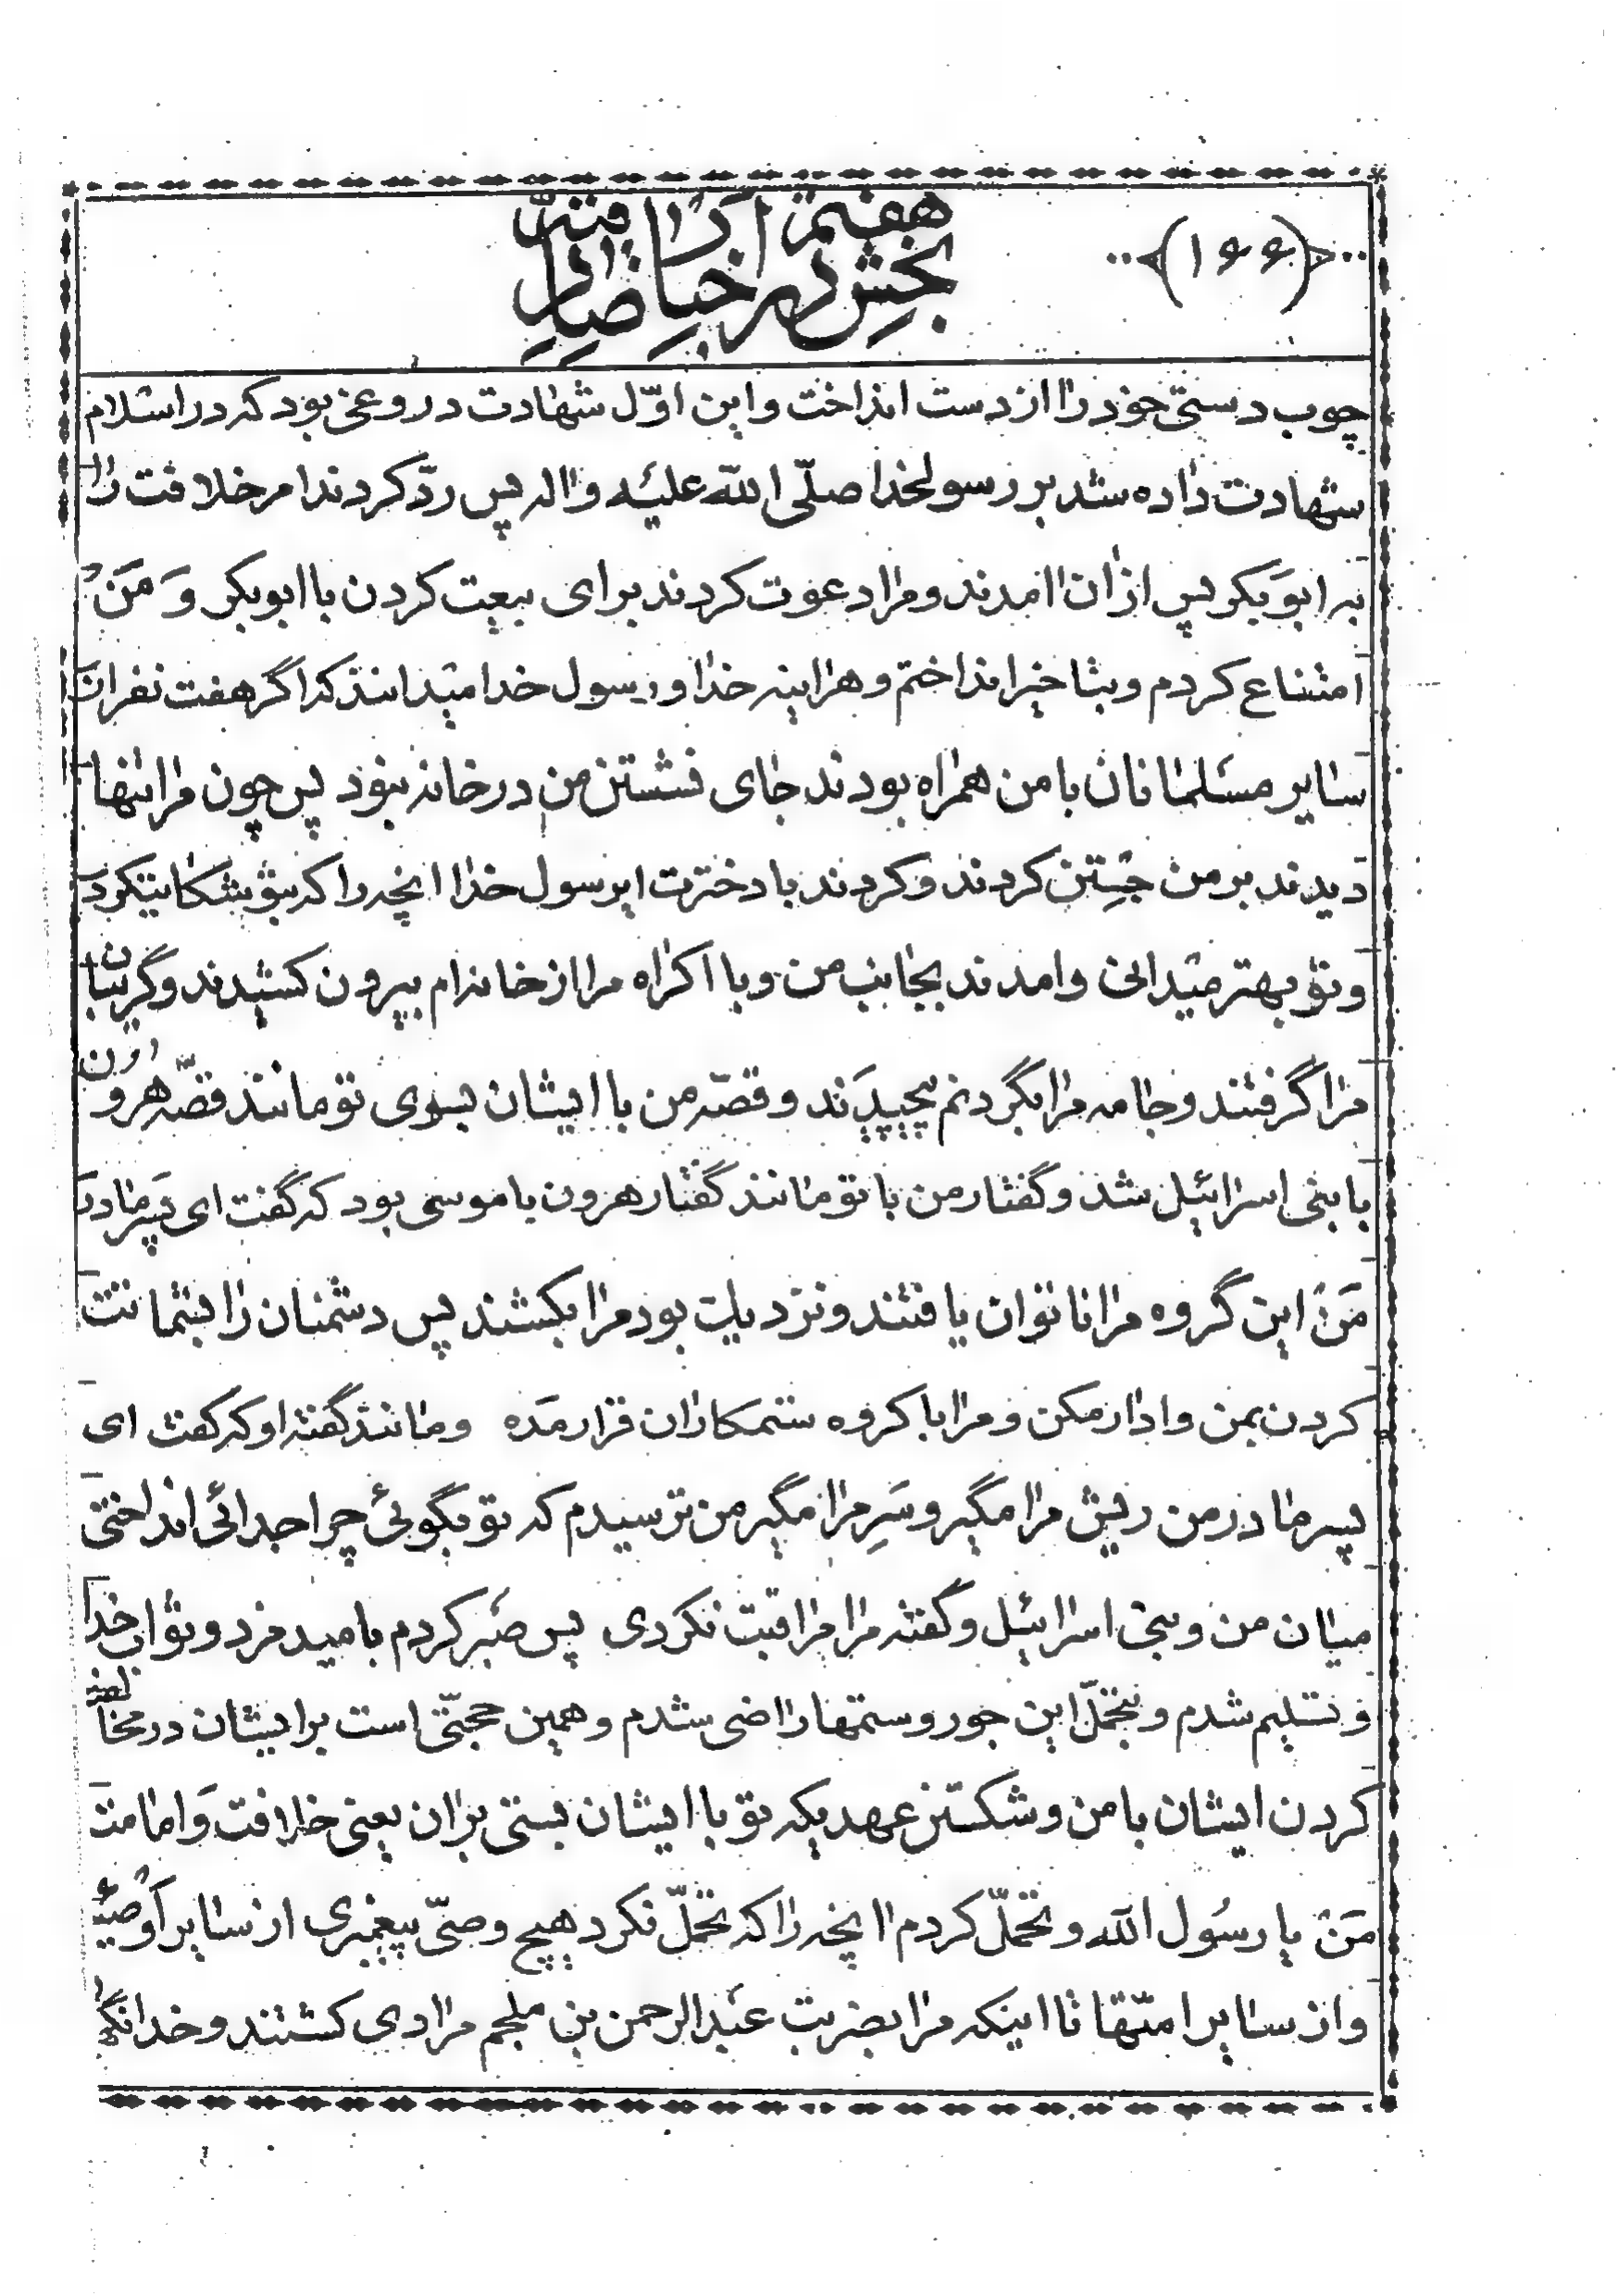 ﴿۱۶۶﴾
بخش هفتم در اخبار
چوب دستی خود را از دست انداخت و این اوّل شهادت دروغی بود که در اسلام
شهادت داده شد بر رسولخدا صلّی اللّه علیه و اله پس ردّ کردند امر خلافت را
به ابوبکر پس از ان امدند و مرا دعوت کردند برای بیعت کردن با ابوبکر و من
امتناع کردم و بتاخیر انداختم و هراینه خدا و رسول خدا میدانند که اگر هفت نفر از
سایر مسلمانان با من همراه بودند جای نشستن من در خانه نبود پس چون مرا تنها
دیدند بر من جستن کردند و کردند با دخترت ایرسول خدا انچه را که بتو شکایت کرد
و تو بهتر میدانی و امدند بجانب من و با اکراه مرا از خانه ام بیرون کشیدند و گریبان
مرا گرفتند و جامه مرا بگردنم پیچیدند و قصّه من با ایشان بسوی تو مانند قصّه هرون
با بنی اسرائیل شد و گفتار من با تو مانند گفتار هرون با موسی بود که گفت ای پسر مادر
من این گروه مرا ناتوان یافتند و نزدیک بود مرا بکشند پس دشمنان را بشماتت
کردن بمن وادار مکن و مرا با گروه ستمکاران قرار مده و مانند گفته او که گفت ای
پسر مادر من ریش مرا مگیر و سر مرا مگیر من ترسیدم که تو بگوئی چرا جدائی انداختی
میان من و بنی اسرائیل و گفته مرا مراقبت نکردی پس صبر کردم بامید مزد و ثواب خدا
و تسلیم شدم و بتحمّل این جور و ستمها راضی شدم و همین حجّتی است بر ایشان در مخالفت
کردن ایشان با من و شکستن عهدیکه تو با ایشان بستی بر ان یعنی خلافت و امامت
من یا رسول اللّه و تحمّل کردم انچه را که تحمّل نکرد هیچ وصیّ پیغمبری از سایر اوصیا
و از سایر امّتها تا اینکه مرا بضربت عبد الرحمن بن ملجم مرادی کشتند و خدا نگه